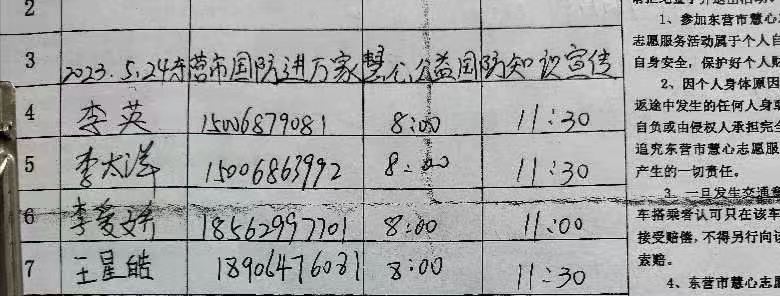 2
3 2023.5.24东营市国防进万家慧心公益国防知识宣传
4 李英 15006879081 8:00 11:30
5 李大洋 15006863992 8:00 11:30
6 李爱娇 18562997701 8:00 11:00
7 王星皓 18906476031 8:00 11:30
1、参加东营市慧心
志愿服务活动属于个人自
自身安全,保护好个人财
2、因个人身体原因
返途中发生的任何人身
自负或由侵权人承担完全
追究东营市慧心志愿服
产生的一切责任。
3、一旦发生交通意
车搭乘者认可只在该车
接受赔偿,不得另行向
索赔。
4、东营市慧心志愿